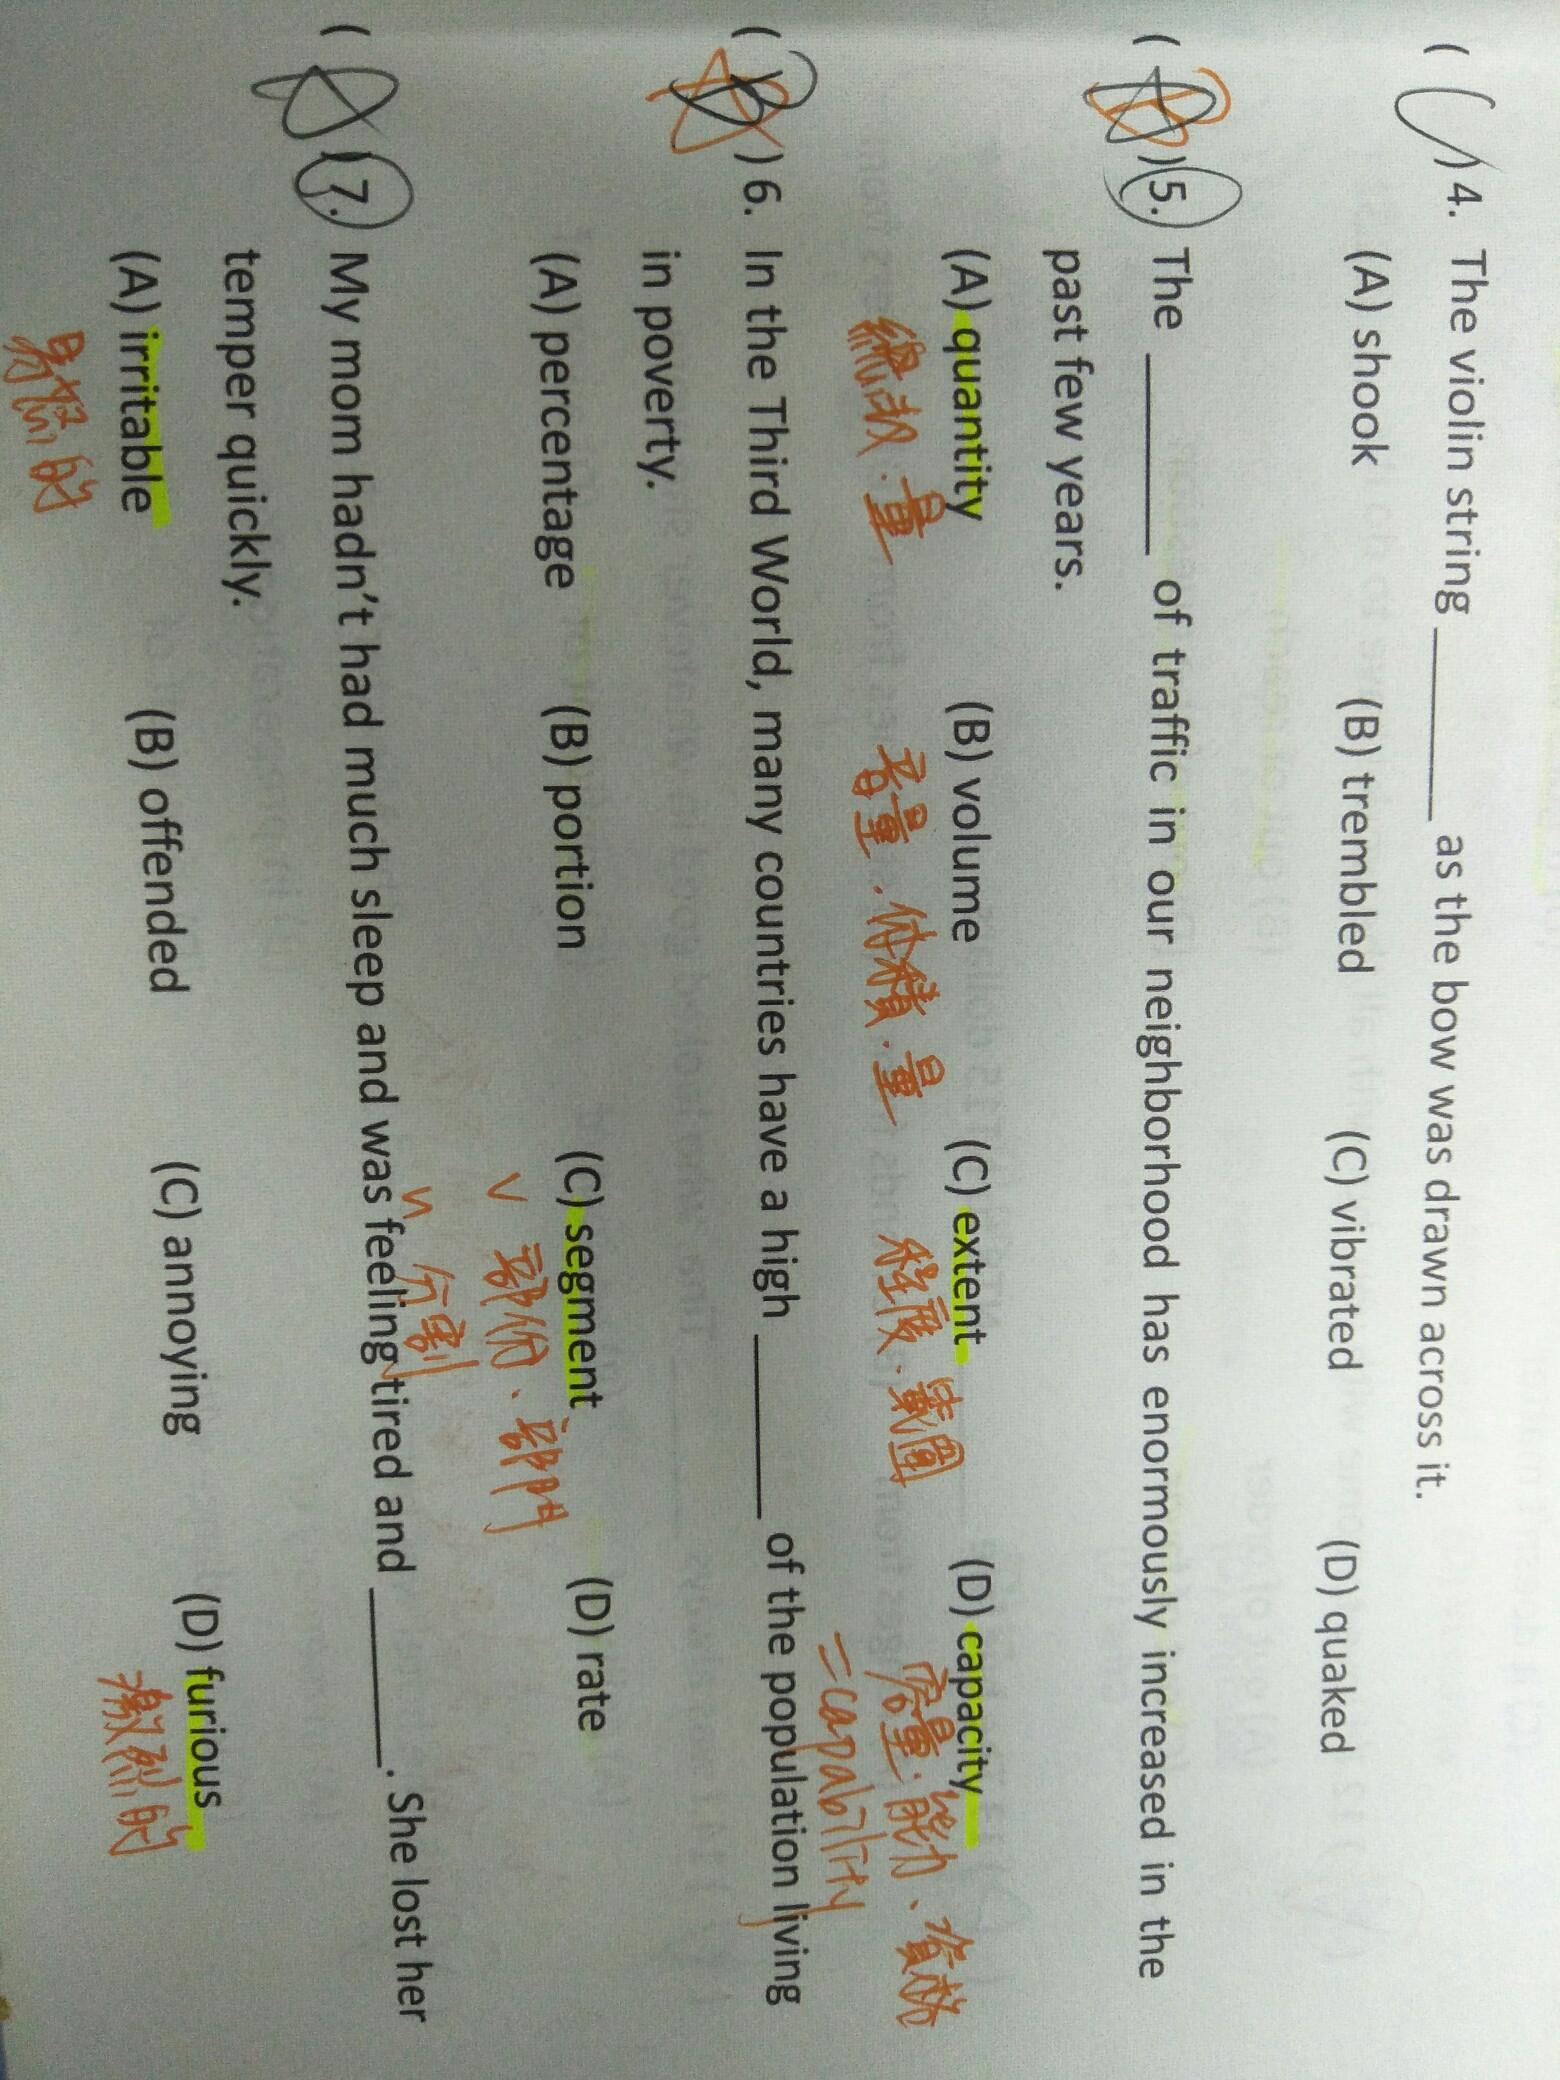 ( C ) 4. The violin string ________ as the bow was drawn across it.
(A) shook (B) trembled (C) vibrated (D) quaked
( ) 5. The ________ of traffic in our neighborhood has enormously increased in the
past few years.
(A) quantity (B) volume (C) extent (D) capacity
總數.量 音量.体積.量 程度.範圍 容量.能力、資格
=capability
( ) 6. In the Third World, many countries have a high ________ of the population living
in poverty.
(A) percentage (B) portion (C) segment (D) rate
v 部份.部門
n 分割
( A ) 7. My mom hadn't had much sleep and was feeling tired and ________. She lost her
temper quickly.
(A) irritable (B) offended (C) annoying (D) furious
易怒的 激烈的